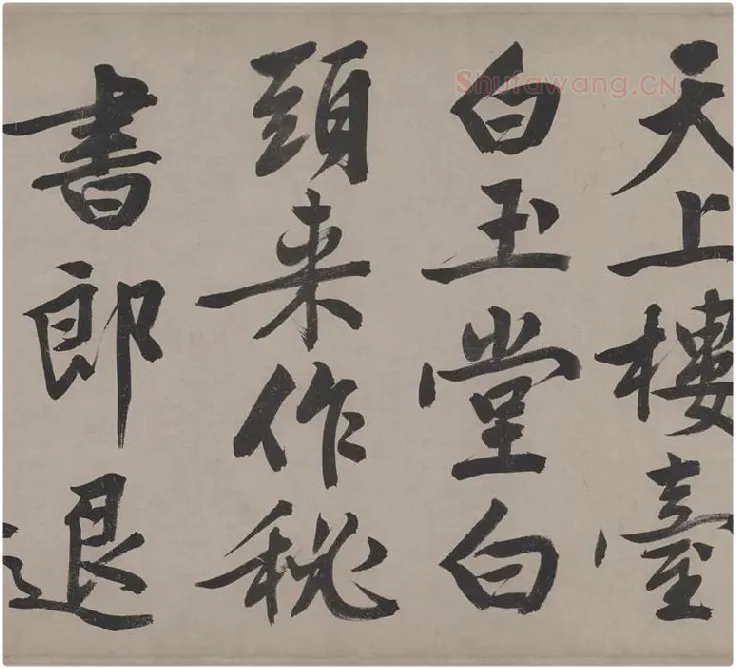 天上樓臺
白玉堂白
頭来作秘
書郎退
Shufawang.CN